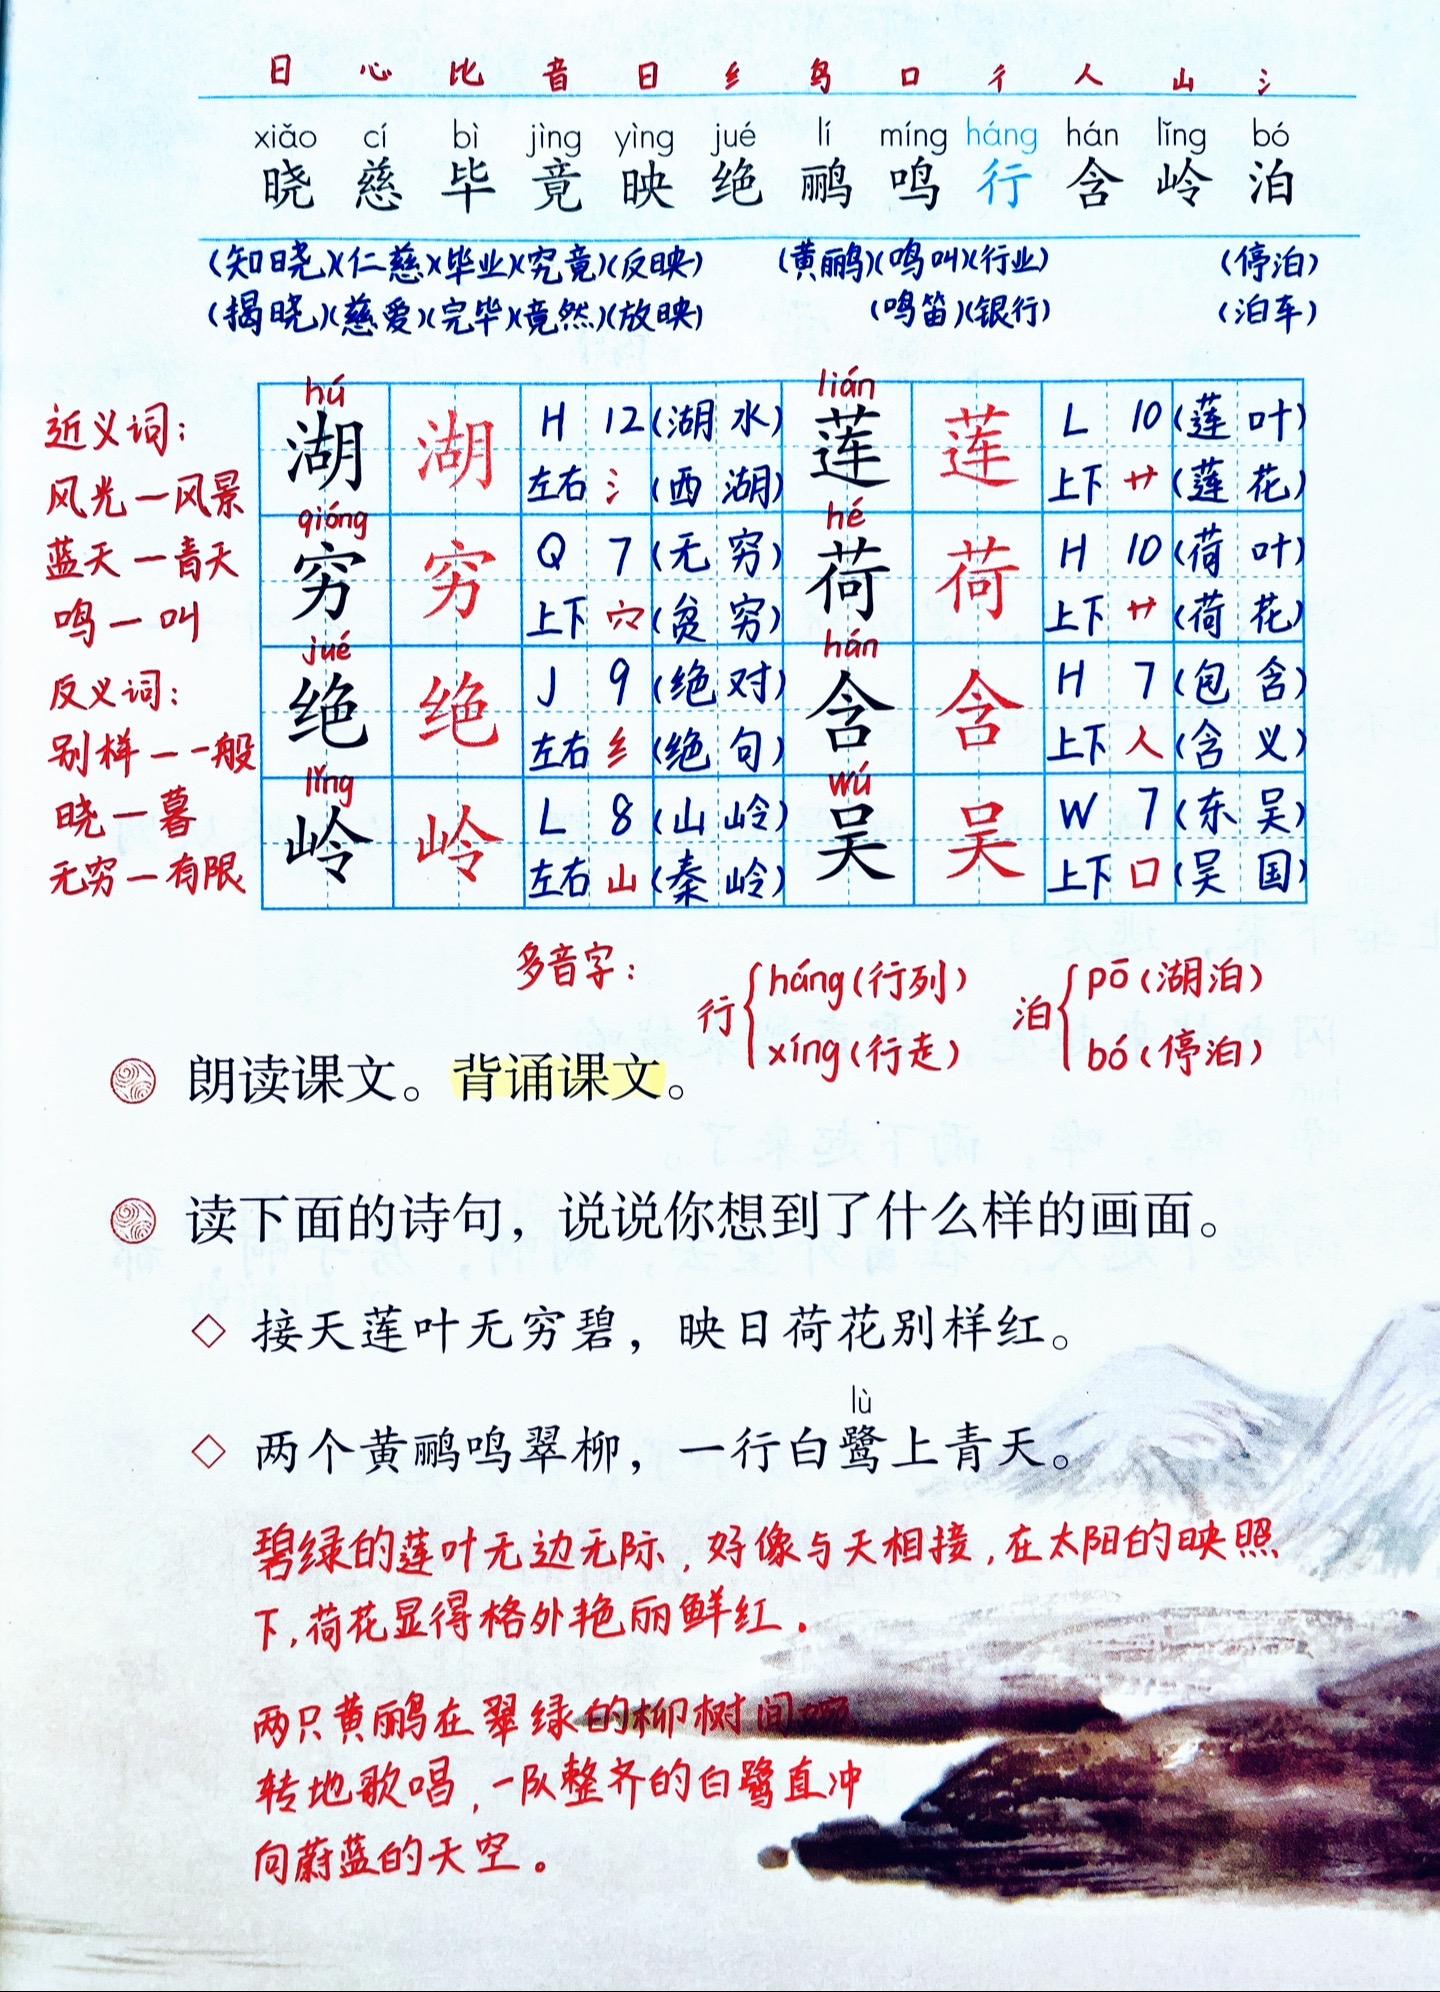 日 心 比 音 日 纟 鸟 口 彳 人 山 氵
xiǎo cí bì jìng yìng jué lí míng háng hán lǐng bó
晓 慈 毕 竟 映 绝 鹂 鸣 行 含 岭 泊
(知晓)(仁慈)(毕业)(究竟)(反映) (黄鹂)(鸣叫)(行业) (停泊)
(揭晓)(慈爱)(完毕)(竟然)(放映) (鸣笛)(银行) (泊车)
近义词：
风光—风景
蓝天—青天
鸣—叫
反义词：
别样—一般
晓—暮
无穷—有限
hú lián
湖 湖 H 12 (湖水) 莲 莲 L 10 (莲叶)
左右 氵 (西湖) 上下 艹 (莲花)
qióng hé
穷 穷 Q 7 (无穷) 荷 荷 H 10 (荷叶)
上下 穴 (贫穷) 上下 艹 (荷花)
jué hán
绝 绝 J 9 (绝对) 含 含 H 7 (包含)
左右 纟 (绝句) 上下 人 (含义)
lǐng wú
岭 岭 L 8 (山岭) 吴 吴 W 7 (东吴)
左右 山 (秦岭) 上下 口 (吴国)
多音字：
行 háng (行列) xíng (行走)
泊 pō (湖泊) bó (停泊)
朗读课文。背诵课文。
读下面的诗句，说说你想到了什么样的画面。
◇ 接天莲叶无穷碧，映日荷花别样红。
lù
◇ 两个黄鹂鸣翠柳，一行白鹭上青天。
碧绿的莲叶无边无际，好像与天相接，在太阳的映照
下，荷花显得格外艳丽鲜红。
两只黄鹂在翠绿的柳树间婉
转地歌唱，一队整齐的白鹭直冲
向蔚蓝的天空。